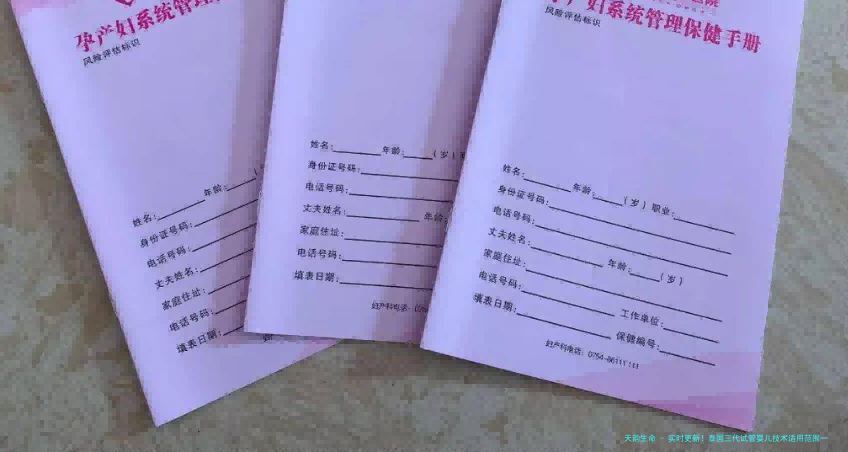 孕产妇系统管理
风险评估标识
姓名: 年龄:
身份证号码:
电话号码:
丈夫姓名:
家庭住址:
电话号码:
填表日期:
姓名: 年龄: (岁)
身份证号码:
电话号码:
丈夫姓名: 年龄:
家庭住址:
电话号码:
填表日期:
妇产科电话:
院
产妇系统管理保健手册
风险评估标识
姓名: 年龄: (岁) 职业:
身份证号码:
电话号码:
丈夫姓名: 年龄: (岁)
家庭住址:
电话号码: 工作单位:
填表日期: 保健编号:
妇产科电话: 0754-86111111
实时更新! 泰国三代试管婴儿技术适用范围一